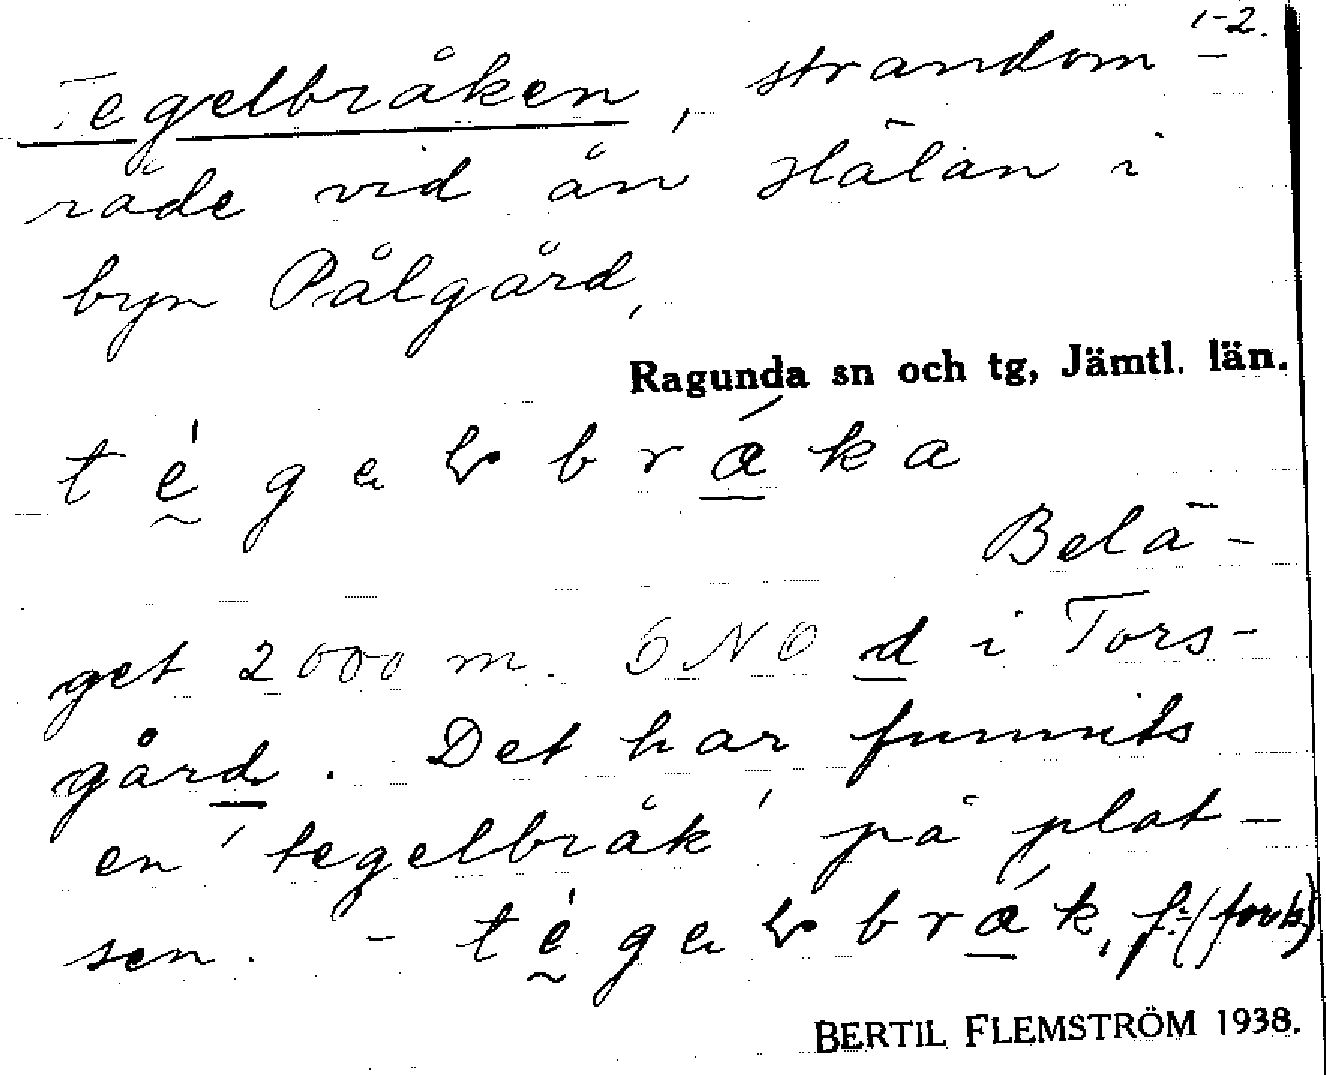 1-2.
Tegelbråken, strandom-
råde vid ån Hälån i
byn Pålgård,
Ragunda sn och tg, Jämtl. län.
Belä-
get 2000 m. ONO d i Tors-
gård. Det har funnits
en 'tegelbråk' på plat-
sen. -
BERTIL FLEMSTRÖM 1938.